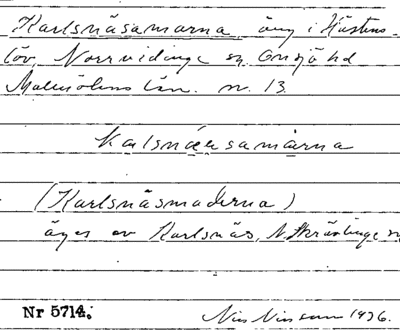 Karlsnäsamarna, äng i Hästens-
löv, Norrvidinge sn. Onsjö hd
Malmöhus län. nr. 13
Kalsnäesamarna
(Karlsnäsmaderna)
äges av Karlsnäs, N. Skrävlinge sn
Nr 5714.
Nils Nilsson 1936.